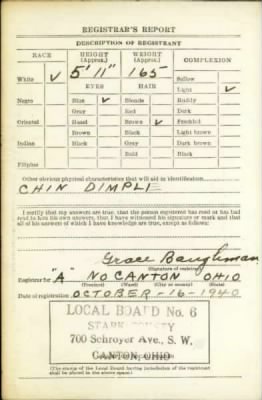 REGISTRAR'S REPORT
DESCRIPTION OF REGISTRANT
RACE HEIGHT (Approx.) WEIGHT (Approx.) COMPLEXION
White ✓ 5' 11" 165 Sallow
EYES HAIR Light ✓
Negro Blue ✓ Blonde Ruddy
Gray Red Dark
Oriental Hazel Brown ✓ Freckled
Brown Black Light brown
Indian Black Gray Dark brown
Bald Black
Filipino
Other obvious physical characteristics that will aid in identification
CHIN DIMPLE
I certify that my answers are true; that the person registered has read or has had
read to him his own answers; that I have witnessed his signature or mark and that
all of his answers of which I have knowledge are true, except as follows:
Grace Baughman
(Signature of registrar)
Registrar for "A" NO CANTON OHIO
(Precinct) (Ward) (City or county) (State)
Date of registration OCTOBER-16-1940
LOCAL BOARD No. 6
STARK COUNTY
700 Schroyer Ave., S. W.
CANTON, OHIO
(The stamp of the Local Board having jurisdiction of the registrant
shall be placed in the above space.)